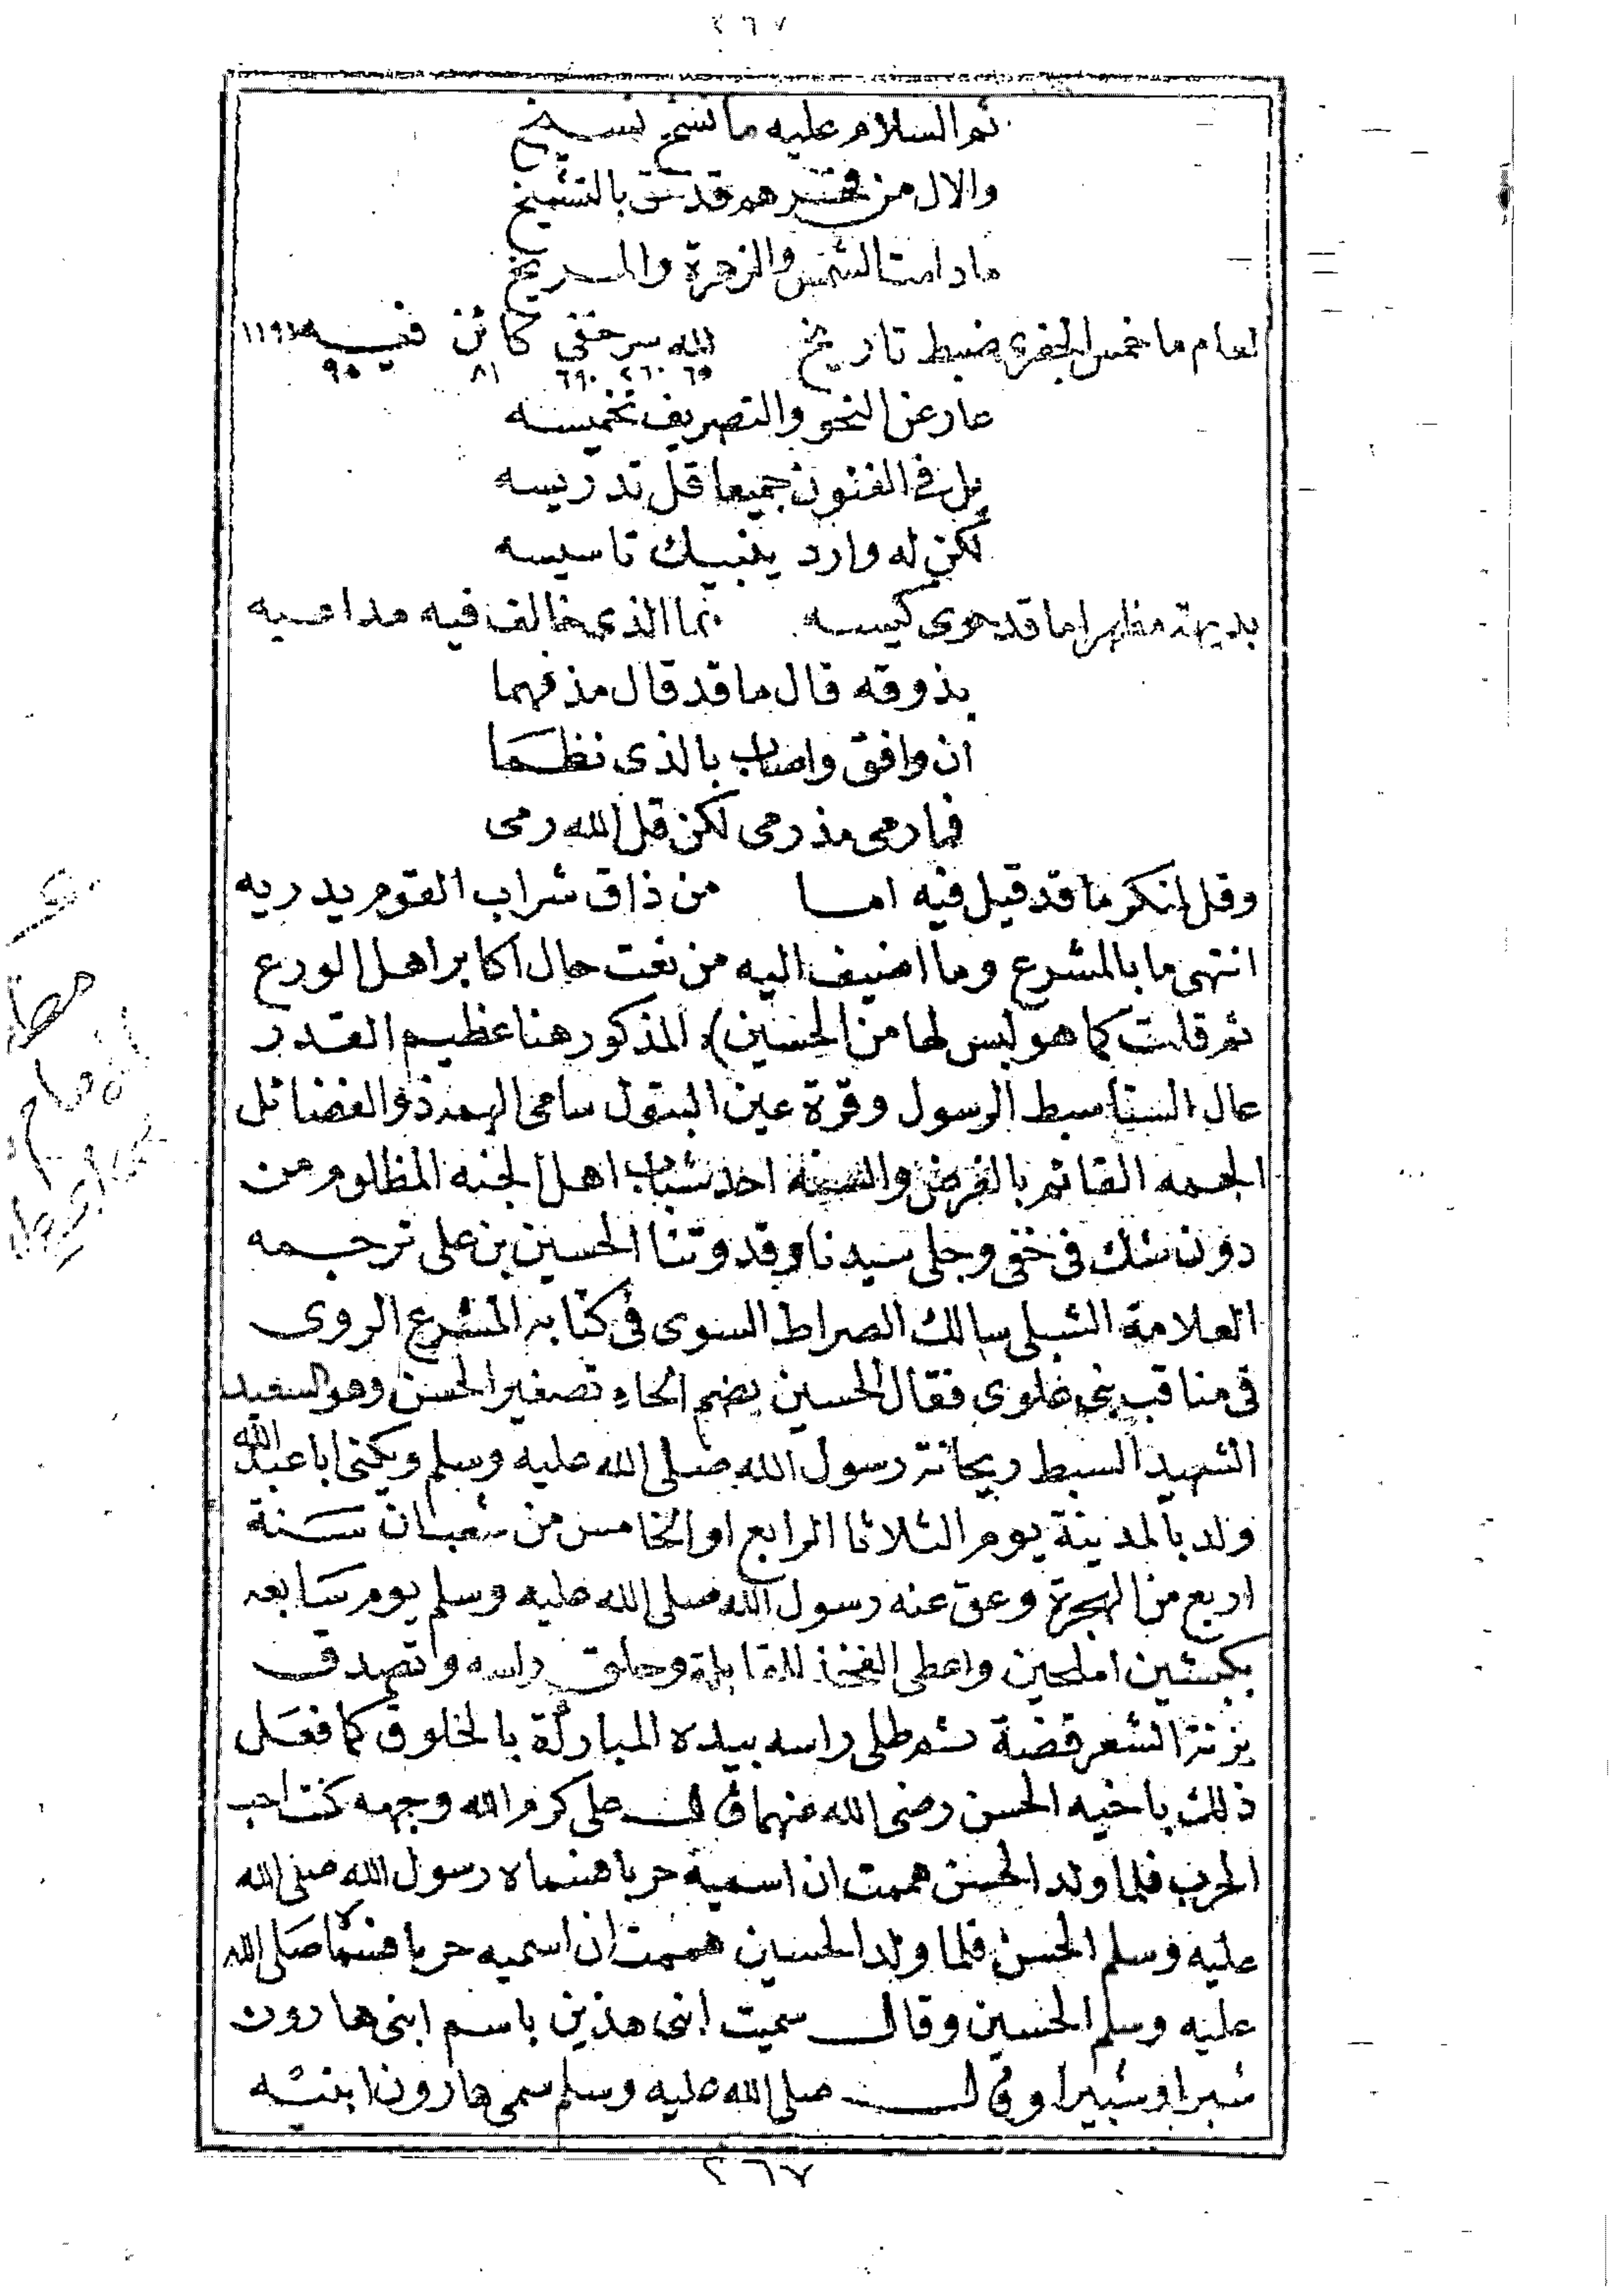 ٢٦٧
ثم السلام عليه ما نسخ نسيخ
والال من فخرهم قد بالتشميخ
مادامت الشمس والزهرة والمريخ
لعام ما خمس الجفري ضبط تاريخ لله سر خفي كائن فيه ١١٩١
٦٥ ٢٦٠ ٦٩٠ ٨١ ٩٥
عار عن النحو والتصريف تخميسه
بل في الفنون جميعا قل تدريسه
لكن له وارد ينبيك تاسيسه
بديهة مظهرا ما قد حوى كيسه فما الذي خالف فيه مداعيه
بذوقه قال ما قد قال مذ فهما
ان وافق واصاب بالذي نظما
فما رمى مذ رمى لكن قل الله رمى
وقل لمنكر ما قد قيل فيه اما من ذاق شراب القوم يدريه
انتهى ما بالمشرع وما اضيف اليه من نعت حال اكابر اهل الورع
ثم قلت كما هو لبس لها من الحسين) المذكور هنا عظيم القدر
عال السنا سبط الرسول وقرة عين البتول سامي الهمة ذو الفضائل
الجمه القائم بالفرض والسنة احد شباب اهل الجنه المظلوم من
دون شك في خفي وجلي سيدنا وقدوتنا الحسين بن علي ترجمه
العلامة الشبلي سالك الصراط السوى في كتابه المشرع الروى
في مناقب بني علوى فقال الحسين بضم الحاء تصغير الحسن وهو السعيد
الشهيد السبط ريحانة رسول الله صلى الله عليه وسلم ويكنى ابا عبد الله
ولد بالمدينة يوم الثلاثا الرابع او الخامس من شعبان سنة
اربع من الهجرة وعق عنه رسول الله صلى الله عليه وسلم يوم سابعه
بكبشين املحين واعطى الفخذ للقابلة وحلق راسه وتصدق
بزنة الشعر فضة ثم طلى راسه بيده المباركة بالخلوق كما فعل
ذلك باخيه الحسن رضى الله عنهما قال على كرم الله وجهه كنت احب
الحرب فلما ولد الحسن هممت ان اسميه حربا فسماه رسول الله صلى الله
عليه وسلم الحسن فلما ولد الحسين هممت ان اسميه حربا فسماه صلى الله
عليه وسلم الحسين وقال سميت ابني هذين باسم ابني هارون
شبرا وشبيرا وقال صلى الله عليه وسلم سمى هارون ابنيه
٢٦٧